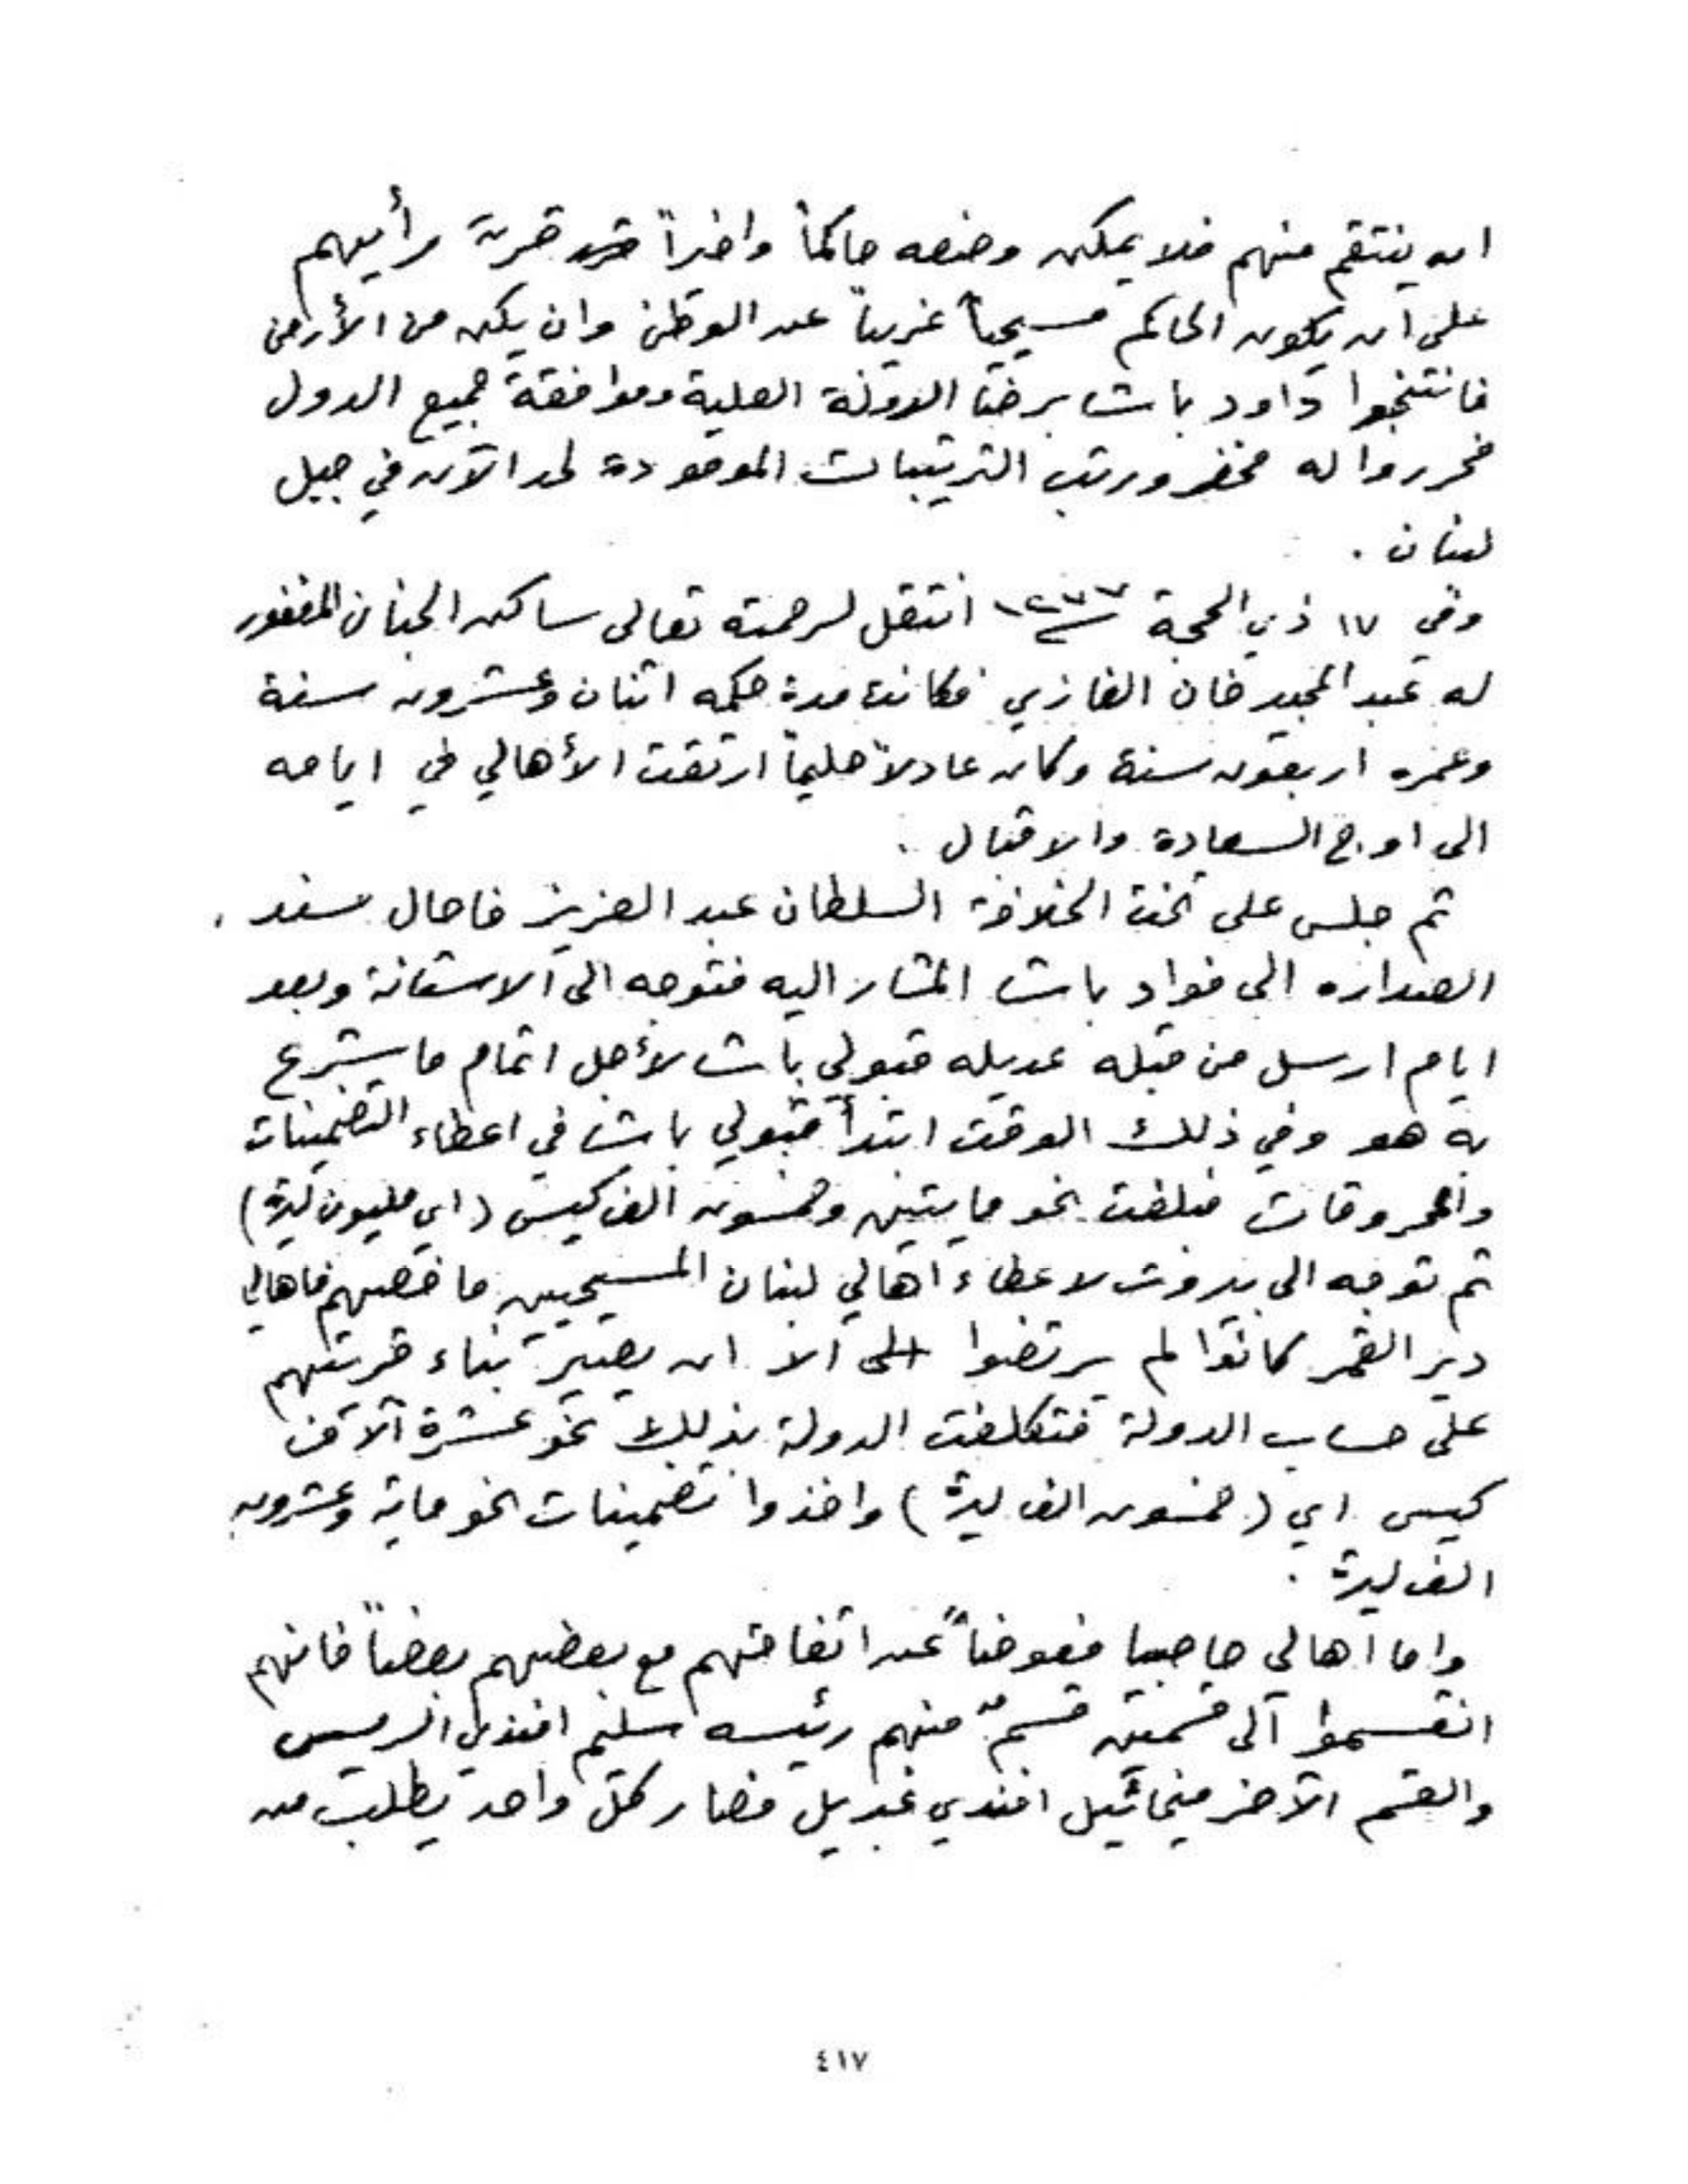 ان ينتقم منهم فلا يمكن وضعه حاكماً واخيراً قرت رأيهم
على ان يكون الحاكم مسيحياً غريباً عن الوطن وان يكن من الأرمن
فانتخبوا داود باشا برضا الدولة العلية وموافقة جميع الدول
فحرروا له محضر ورتب الترتيبات الموجودة لحد الآن في جبل
لبنان .
وفي ١٧ ذي الحجة سنة ١٢٧٧ انتقل لرحمته تعالى ساكن الجنان المغفور
له عبد المجيد خان الغازي فكانت مدة حكمه اثنان وعشرون سنة
وعمره اربعون سنة وكان عادلاً حليماً ارتقت الأهالي في ايامه
الى اوج السعادة والاقبال .
ثم جلس على تخت الخلافة السلطان عبد العزيز فاحال مسند
الصداره الى فواد باشا المشار اليه فتوجه الى الاستانة وبعد
ايام ارسل من قبله عديله قبولي باشا لأجل اتمام ما شرع
به هو وفي ذلك الوقت ابتدأ قبولي باشا في اعطاء التضمينات
والمحروقات فبلغت نحو مايتين وخمسون الف كيس (اي مليون ليرة)
ثم توجه الى بيروت لاعطاء اهالي لبنان المسيحيين ما خصهم فاهالي
دير القمر كانوا لم يرتضوا الا ان يصير بناء قريتهم
على حساب الدولة فتكلفت الدولة بذلك نحو عشرة آلاف
كيس اي (خمسون الف ليرة) واخذوا تضمينات نحو ماية وعشرون
الف ليرة .
واما اهالي حاصبيا فعوضاً عن اتفاقهم مع بعضهم بعضاً فانهم
انقسموا الى قسمين قسمٌ منهم رئيسه سليم افندي الريس
والقسم الآخر ميخائيل افندي غبريل فصار كل واحد يطلب من
٤١٧